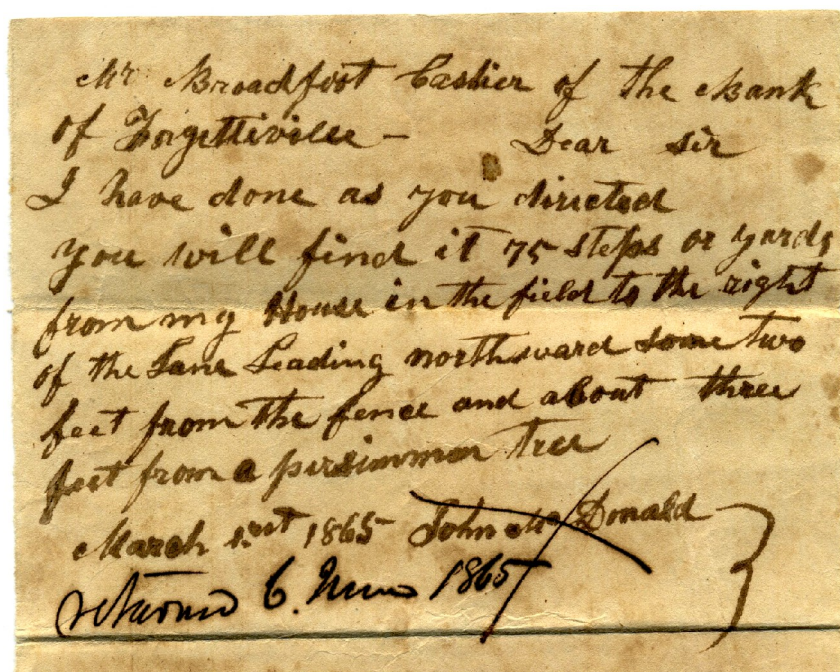 Mr Broadfoot Cashier of the Bank
of Foyettiville - Dear sir
I have done as you directed
you will find it 75 steps or yards
from my House in the field to the right
of the Lane Leading northward some two
feet from the fence and about three
feet from a persimmon tree
March 1st 1865 John McDonald
returned 6. June 1865